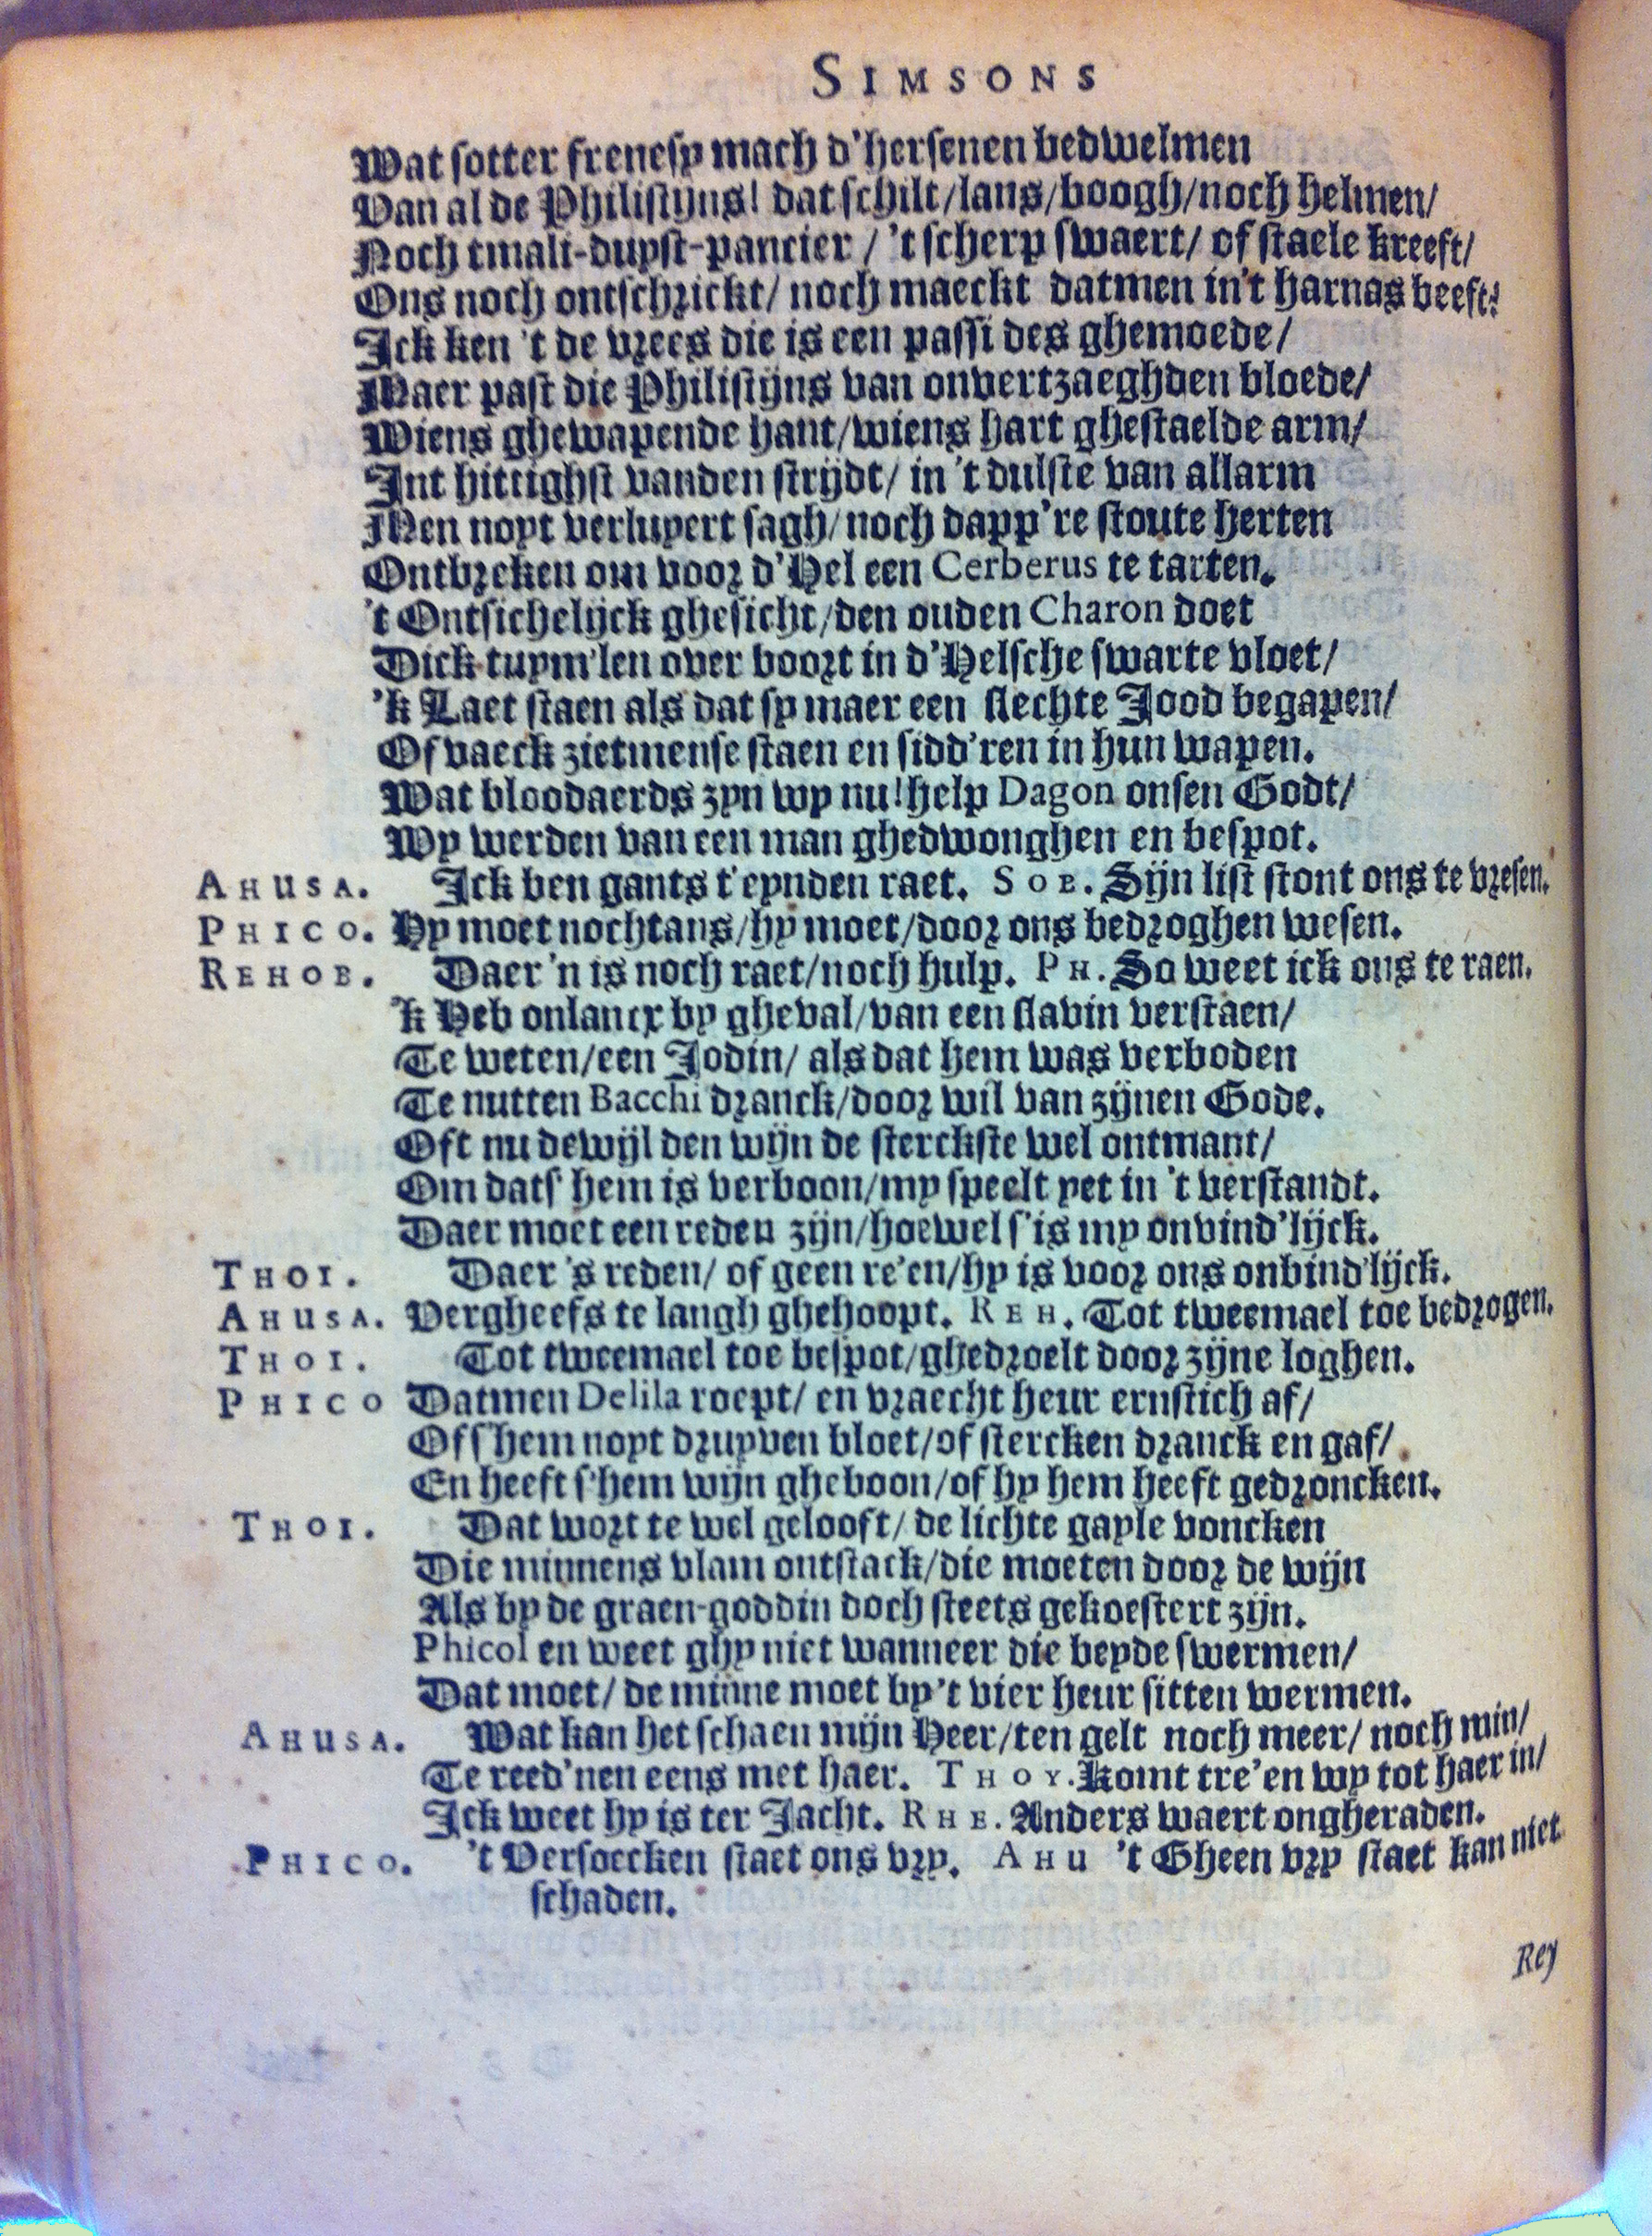 SIMSONS
Wat sotter frenesy mach d'hersenen bedwelmen
Van al de Philistijns! dat schilt/lans/boogh/noch helmen/
Noch tmali-duyst-pancier / 't scherp swaert/ of staele kreeft/
Ons noch ontschrickt/ noch maeckt datmen in't harnas beeft!
Ick ken 't de vrees die is een passi des ghemoede/
Maer past die Philistijns van onvertzaeghden bloede/
Wiens ghewapende hant/wiens hart ghestaelde arm/
Int hittighst vanden strijdt/ in 't dulste van allarm
Men noyt verluyert sagh/noch dapp're stoute herten
Ontbreken om voor d'Hel een Cerberus te tarten.
't Ontsichelijck ghesicht/den ouden Charon doet
Dick tuym'len over boort in d'Helsche swarte vloet/
'k Laet staen als dat sy maer een slechte Jood begapen/
Of vaeck zietmense staen en sidd'ren in hun wapen.
Wat bloodaerds zyn wy nu!help Dagon onsen Godt/
Wy werden van een man ghedwonghen en bespot.
AHUSA. Ick ben gants t'eynden raet. SOB. Sijn list stont ons te vresen.
PHICO. Hy moet nochtans/hy moet/door ons bedroghen wesen.
REHOB. Daer'n is noch raet/noch hulp. PH. So weet ick ons te raen.
'k Heb onlancx by gheval/van een slavin verstaen/
Te weten/een Jodin/ als dat hem was verboden
Te nutten Bacchi dranck/door wil van zijnen Gode.
Oft nu dewijl den wijn de sterckste wel ontmant/
Om dats' hem is verboon/my speelt yet in 't verstandt.
Daer moet een reden zijn/hoewel s'is my onvind'lijck.
THOI. Daer's reden/ of geen re'en/hy is voor ons onbind'lijck.
AHUSA. Vergheefs te langh ghehoopt. REH. Tot tweemael toe bedrogen.
THOI. Tot tweemael toe bespot/ghedroelt door zijne loghen.
PHICO Datmen Delila roept/ en vraecht heur ernstich af/
Of s'hem noyt druyven bloet/of stercken dranck en gaf/
En heeft s'hem wijn gheboon/of hy hem heeft gedroncken.
THOI. Dat wort te wel gelooft/ de lichte gayle voncken
Die minnens vlam ontstack/die moeten door de wijn
Als by de graen-goddin doch steets gekoestert zijn.
Phicol en weet ghy niet wanneer die beyde swermen/
Dat moet/ de minne moet by't vier heur sitten wermen.
AHUSA. Wat kan het schaen mijn Heer/ten gelt noch meer/ noch min/
Te reed'nen eens met haer. THOY. Komt tre'en wy tot haer in/
Ick weet hy is ter Jacht. RHE. Anders waert ongheraden.
PHICO. 't Versoecken staet ons vry. AHU 't Gheen vry staet kan niet
schaden.
Rey